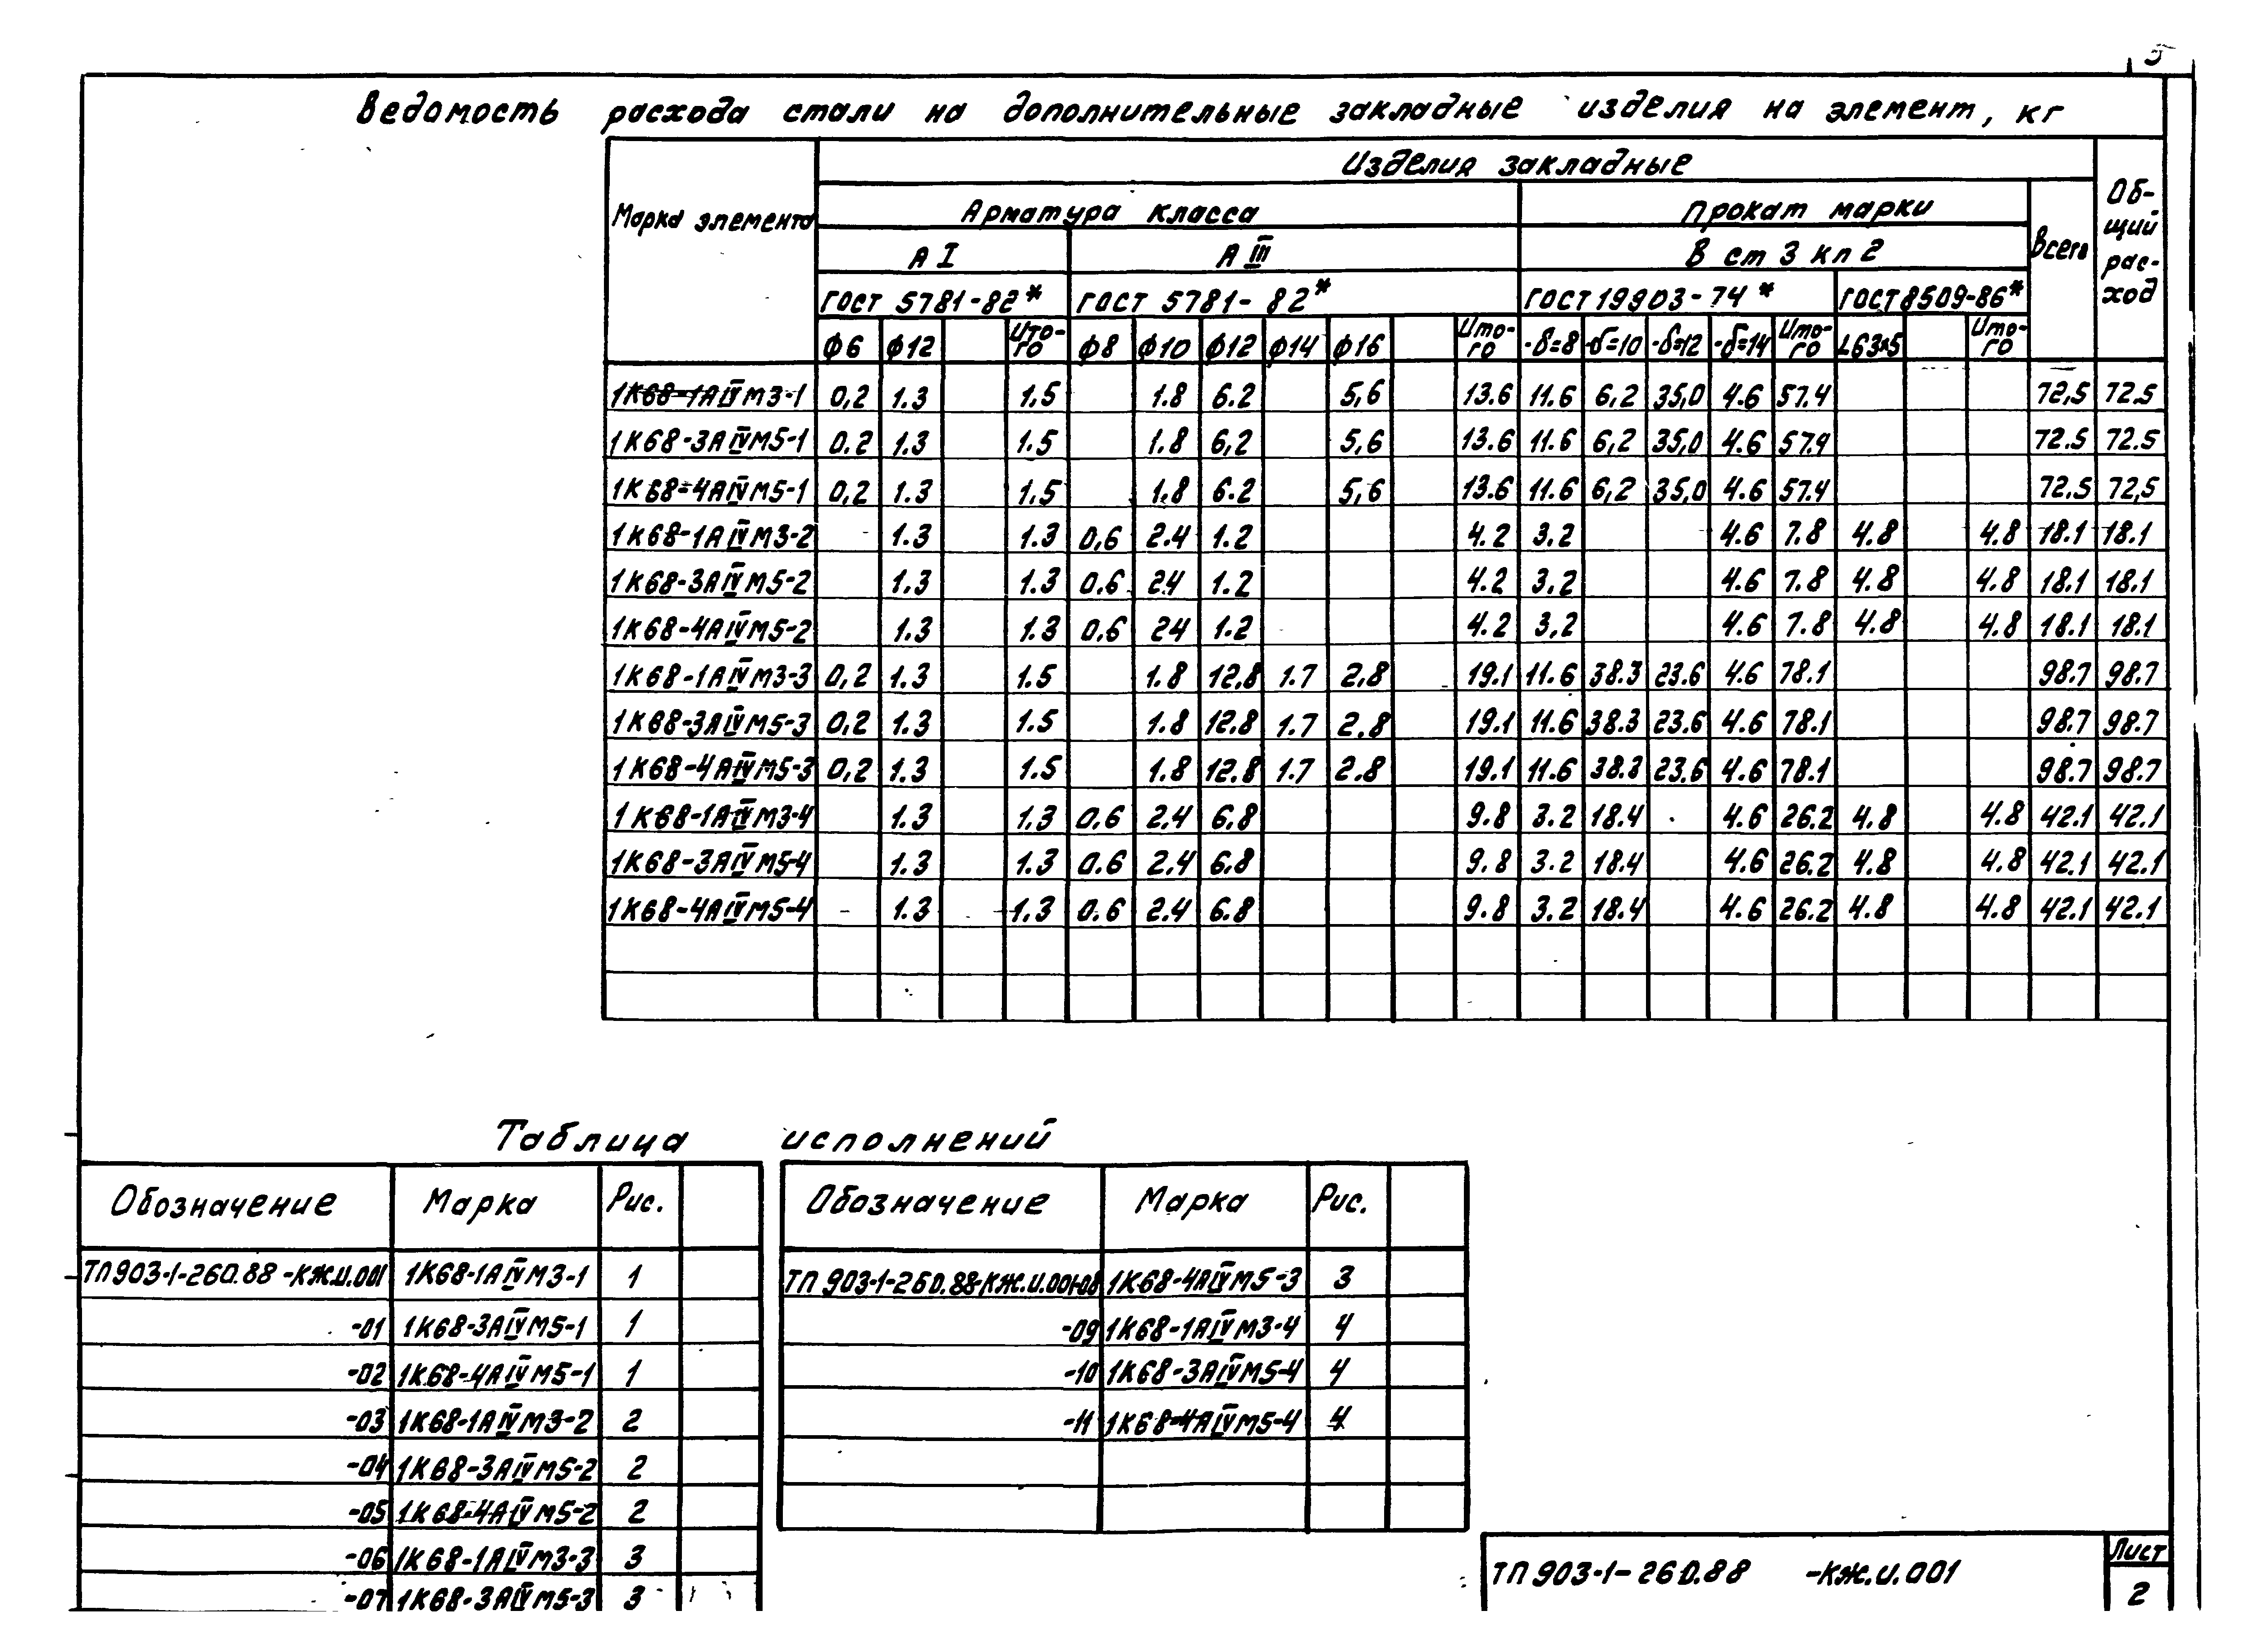 5
Ведомость расхода стали на дополнительные закладные изделия на элемент, кг
Марка элемента
Изделия закладные
Общий рас-ход
Арматура класса
Прокат марки
Всего
А I
А III
В ст 3 кп 2
ГОСТ 5781-82* ГОСТ 5781-82* ГОСТ 19903-74* ГОСТ 8509-86*
ф6 ф12 Ито-го ф8 ф10 ф12 ф14 ф16 Ито-го -δ=8 -δ=10 -δ=12 -δ=14 Ито-го L63x5 Ито-го
1К68-1АIVМ3-1 0,2 1.3 1.5 1.8 6.2 5,6 13.6 11.6 6,2 35,0 4.6 57.4 72,5 72.5
1К68-3АIVМ5-1 0.2 1.3 1.5 1.8 6,2 5,6 13.6 11.6 6,2 35,0 4.6 57.4 72.5 72.5
1К68-4АIVМ5-1 0,2 1.3 1,5 1.8 6.2 5,6 13.6 11.6 6,2 35,0 4.6 57.4 72.5 72,5
1К68-1АIVМ3-2 1.3 1.3 0,6 2.4 1.2 4.2 3.2 4.6 7.8 4.8 4.8 18.1 18.1
1К68-3АIVМ5-2 1,3 1.3 0.6 24 1.2 4.2 3,2 4.6 7.8 4.8 4.8 18.1 18.1
1К68-4АIVМ5-2 1.3 1.3 0,6 24 1.2 4.2 3,2 4.6 7.8 4.8 4.8 18.1 18.1
1К68-1АIVМ3-3 0,2 1.3 1.5 1.8 12,8 1.7 2,8 19.1 11.6 38.3 23.6 4.6 78.1 98.7 98.7
1К68-3АIVМ5-3 0,2 1.3 1.5 1.8 12.8 1.7 2.8 19.1 11.6 38.3 23.6 4.6 78.1 98.7 98.7
1К68-4АIVМ5-3 0,2 1.3 1.5 1.8 12.8 1.7 2.8 19.1 11.6 38.3 23.6 4.6 78.1 98.7 98.7
1К68-1АIVМ3-4 1.3 1,3 0.6 2.4 6.8 9.8 3.2 18.4 4.6 26.2 4.8 4.8 42.1 42.1
1К68-3АIVМ5-4 1.3 1.3 0.6 2.4 6.8 9.8 3.2 18.4 4.6 26.2 4.8 4.8 42.1 42.1
1К68-4АIVМ5-4 1.3 1,3 0.6 2.4 6.8 9.8 3.2 18.4 4.6 26.2 4.8 4.8 42.1 42.1
Таблица исполнений
Обозначение Марка Рис.
ТП903-1-260.88-КЖ.И.001 1К68-1АIVМ3-1 1
-01 1К68-3АIVМ5-1 1
-02 1К68-4АIVМ5-1 1
-03 1К68-1АIVМ3-2 2
-04 1К68-3АIVМ5-2 2
-05 1К68-4АIVМ5-2 2
-06 1К68-1АIVМ3-3 3
-07 1К68-3АIVМ5-3 3
Обозначение Марка Рис.
ТП903-1-260.88-КЖ.И.001-08 1К68-4АIVМ5-3 3
-09 1К68-1АIVМ3-4 4
-10 1К68-3АIVМ5-4 4
-11 1К68-4АIVМ5-4 4
ТП903-1-260.88 -КЖ.И.001
Лист
2